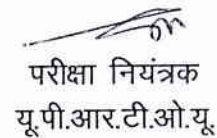 परीक्षा नियंत्रक
यू.पी.आर.टी.ओ.यू.